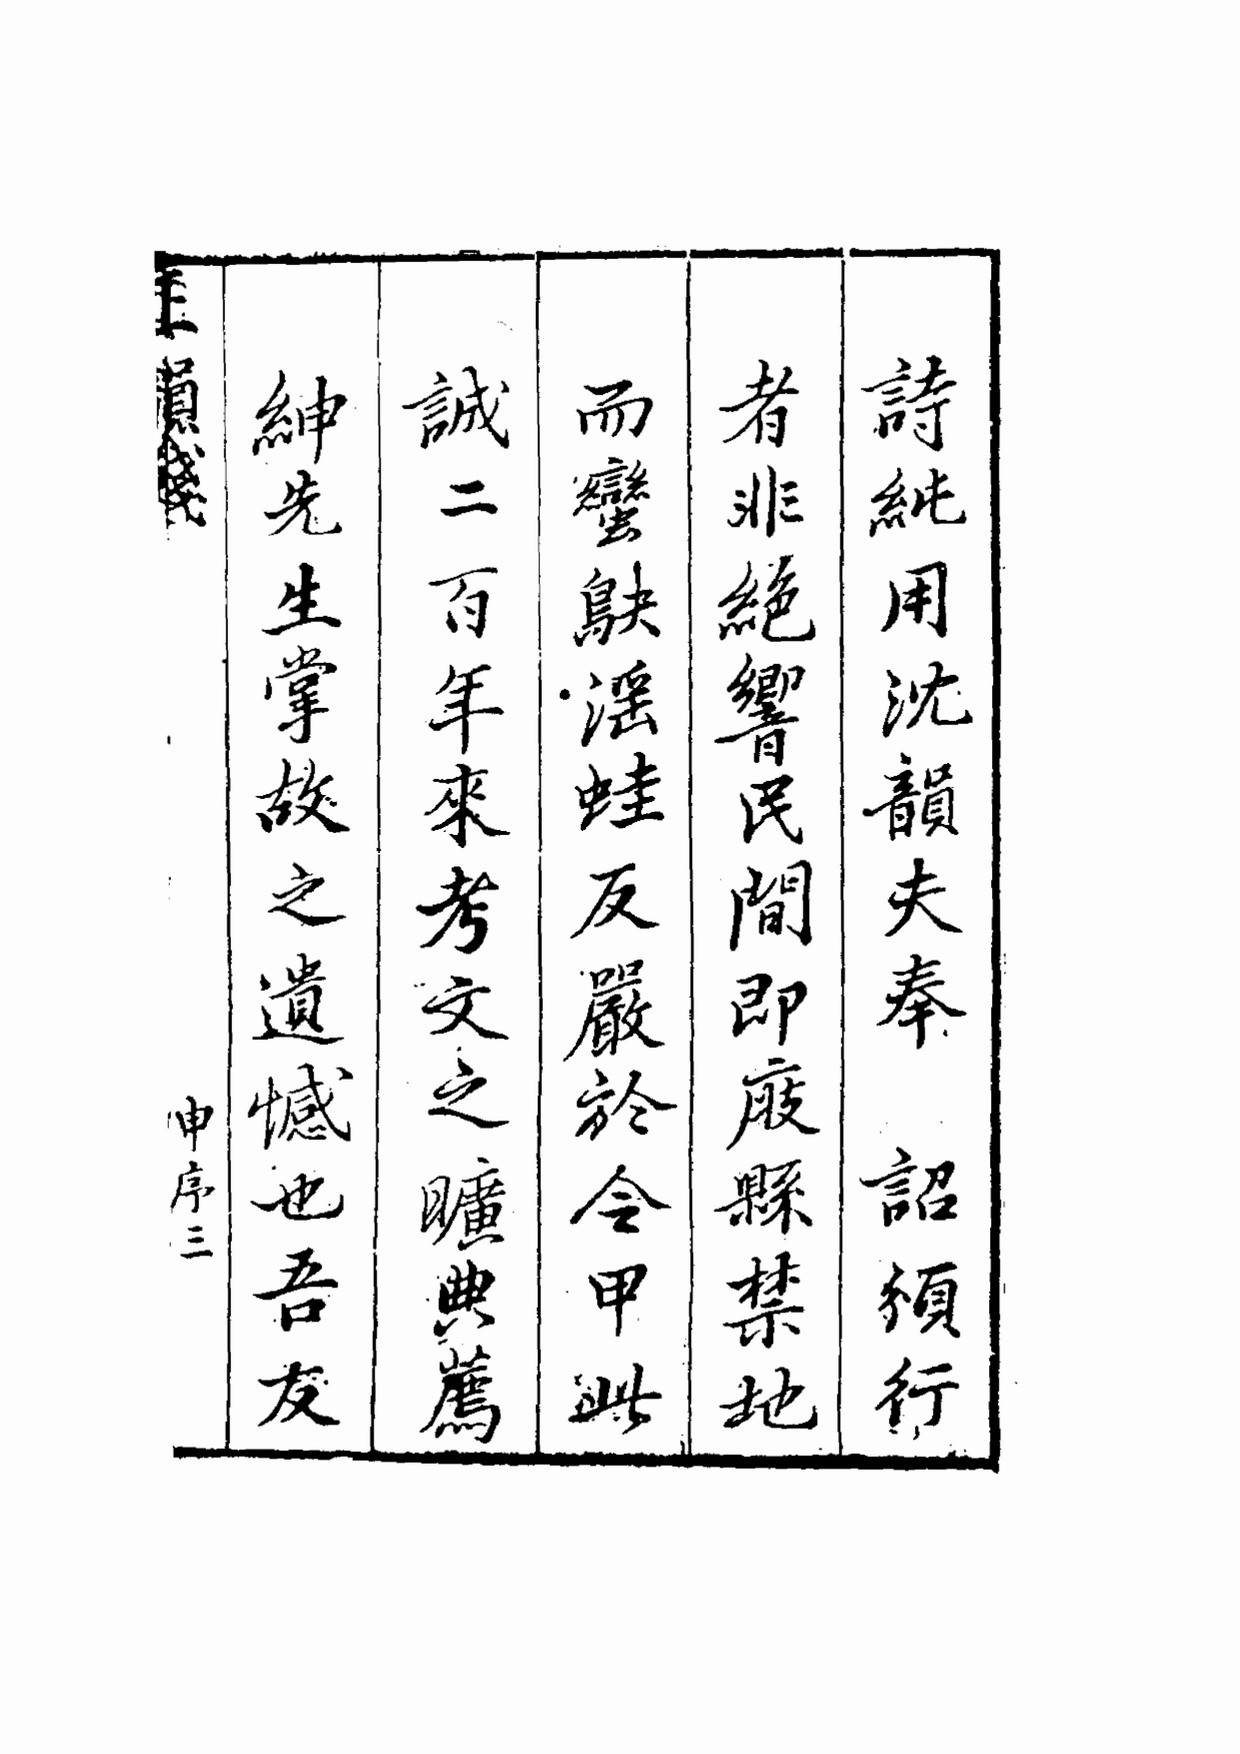 詩純用沈韻夫奉　詔頒行
者非絕響民間即庋縣禁地
而蠻鴃滛蛙反嚴於令甲此
誠二百年來考文之曠典薦
紳先生掌故之遺憾也吾友
正韻箋
申序三